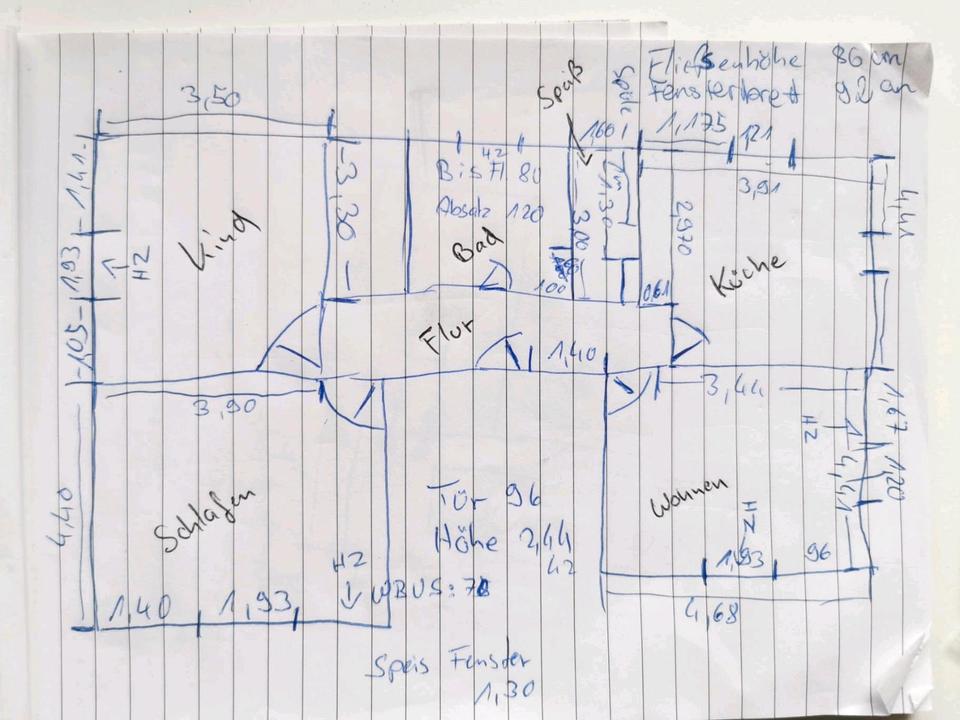 Fließenhöhe 86 cm
Fensterbrett 92 cm
Speiß
Spüle
3,50
1,60
1,175
121
3,91
4,41
1,41
3,30
42
Bis Fl. 80
Absatz 120
Bad
3,00
1,30
2,970
Küche
Kind
1,93
HZ
1,05
100
0,61
Flur
1,40
3,90
3,44
1,67
1,20
HZ
4,41
4,40
Schlafen
Tür 96
Höhe 2,44
42
Wohnen
HZ
1,93
96
HZ
1,40
1,93
4,68
Speis Fenster
1,30